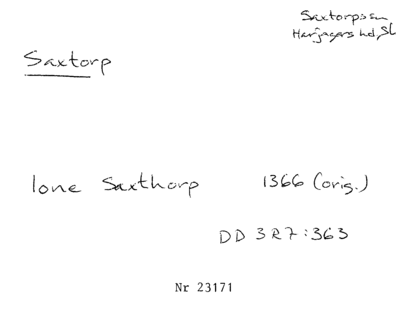 Saxtorps sn
Harjagers hd, SL
Saxtorp
lone Saxthorp 1366 (orig.)
DD 3 R 7 : 363
Nr 23171